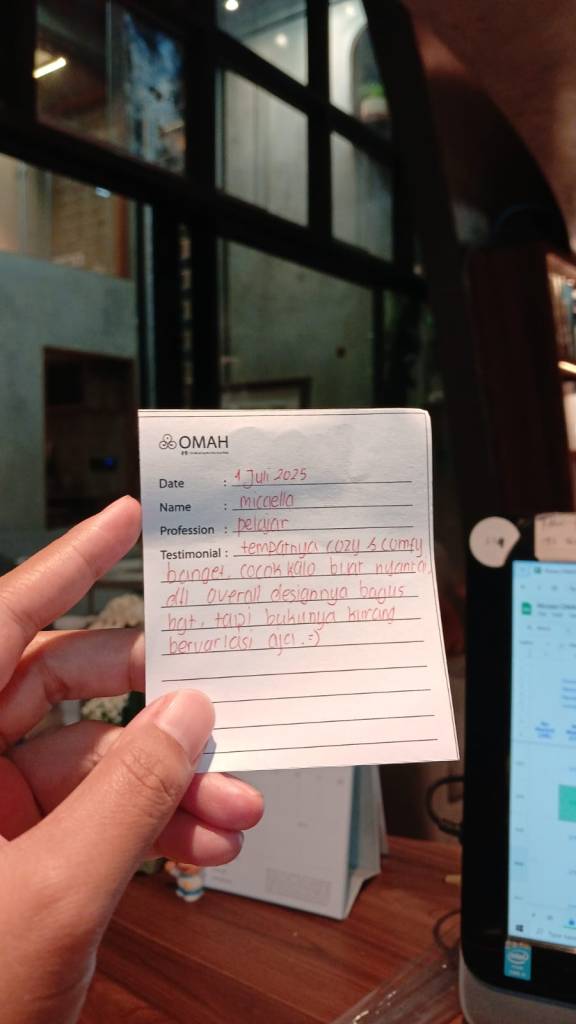 OMAH
Date : 1 Juli 2025
Name : micaella
Profession : pelajar
Testimonial : tempatnya cozy & comfy
banget, cocok kalo buat nyantai,
dll overall designnya bagus
bgt, tapi bukunya kurang
bervariasi aja. =)